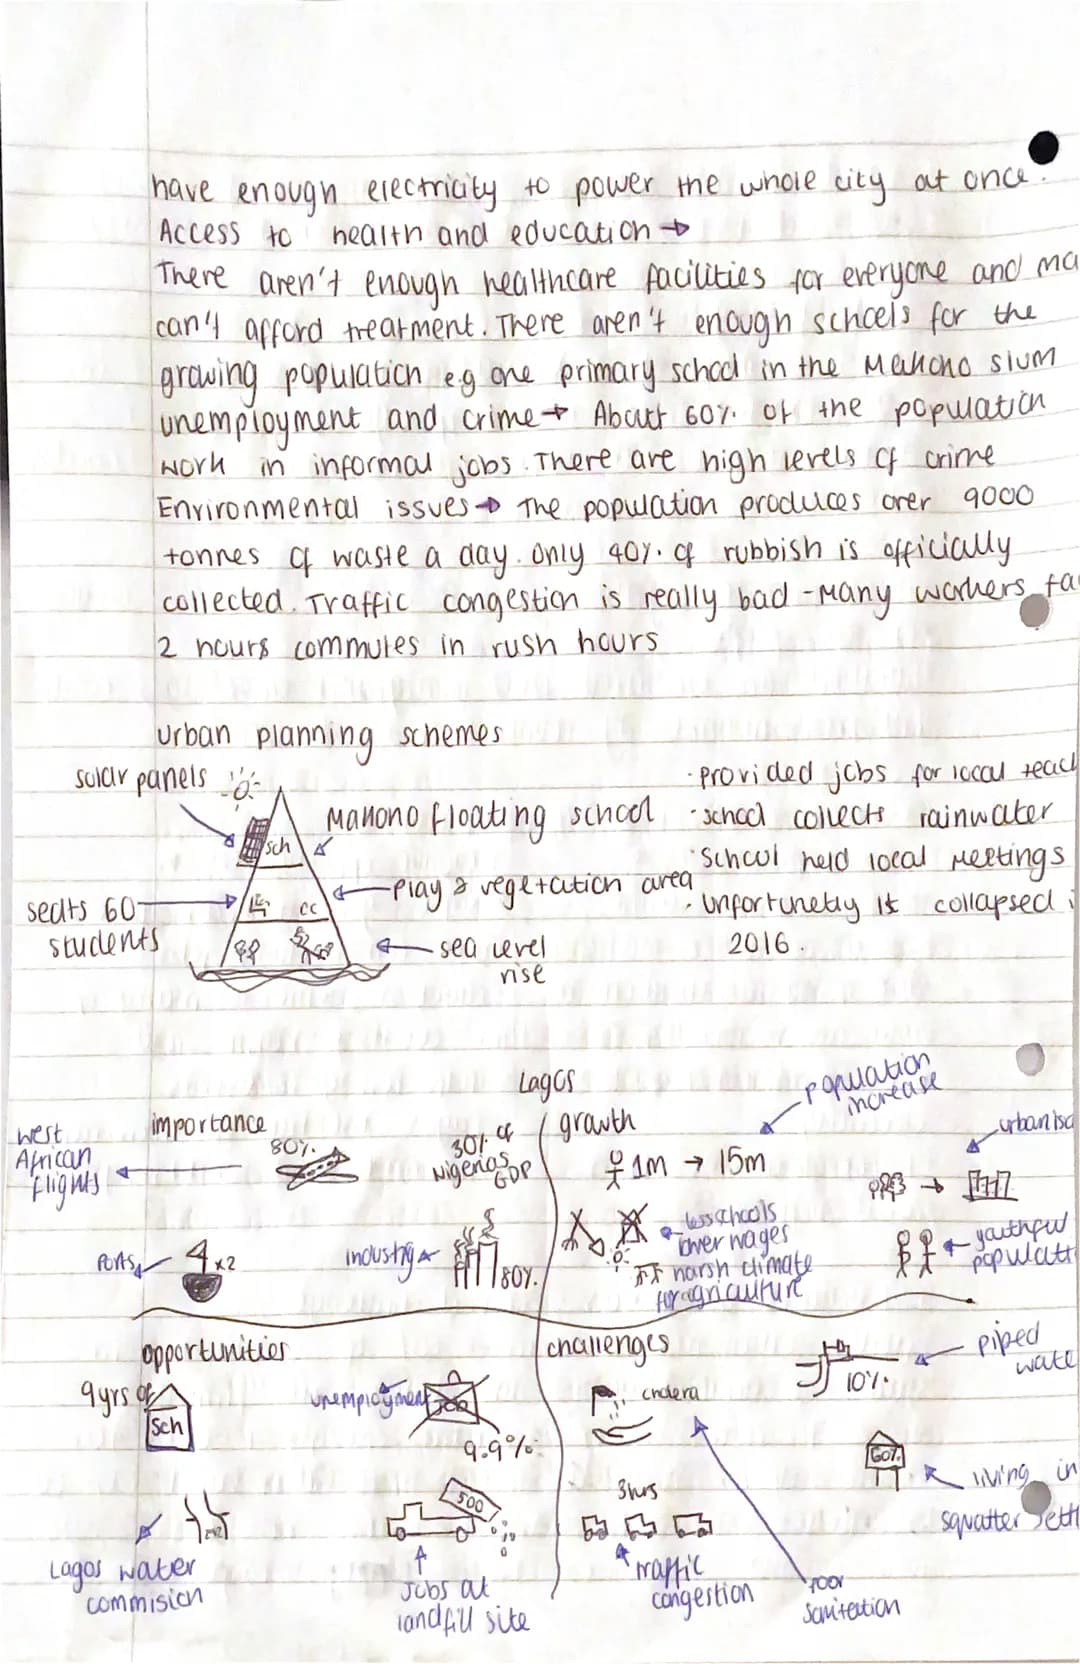 have enough electricity to power the whole city at once.
Access to health and education →
There aren't enough healthcare facilities for everyone and ma
can't afford treatment. There aren't enough schools for the
growing population e.g one primary school in the Makono slum
unemployment and crime → About 60% of the population
work in informal jobs. There are high levels of crime
Environmental issues → The population produces over 9000
tonnes of waste a day. Only 40% of rubbish is officially
collected. Traffic congestion is really bad - Many workers fa
2 hours commutes in rush hours
urban planning schemes
solar panels
Makono floating school
sch
seats 60
students
cc
play & vegetation area
sea level
rise
· provided jobs for local teach
· school collects rainwater
· School held local Meetings
· Unfortunetly it collapsed i
2016.
Lagos
importance
West
African
flights
80%
30% of
Nigerias
GDP
Ports
4 x2
industry
80%
growth
population
increase
1m → 15m
urbanisa
→
less schools
lower wages
harsh climate
for agriculture
youthful
populati
opportunities
9yrs of
Sch
unemployment
Job
9.9%
Lagos water
commision
500
Jobs at
landfill site
challenges
cholera
10%
piped
wate
60%
living in
squatter sett
3hrs
traffic
congestion
poor
Sanitation